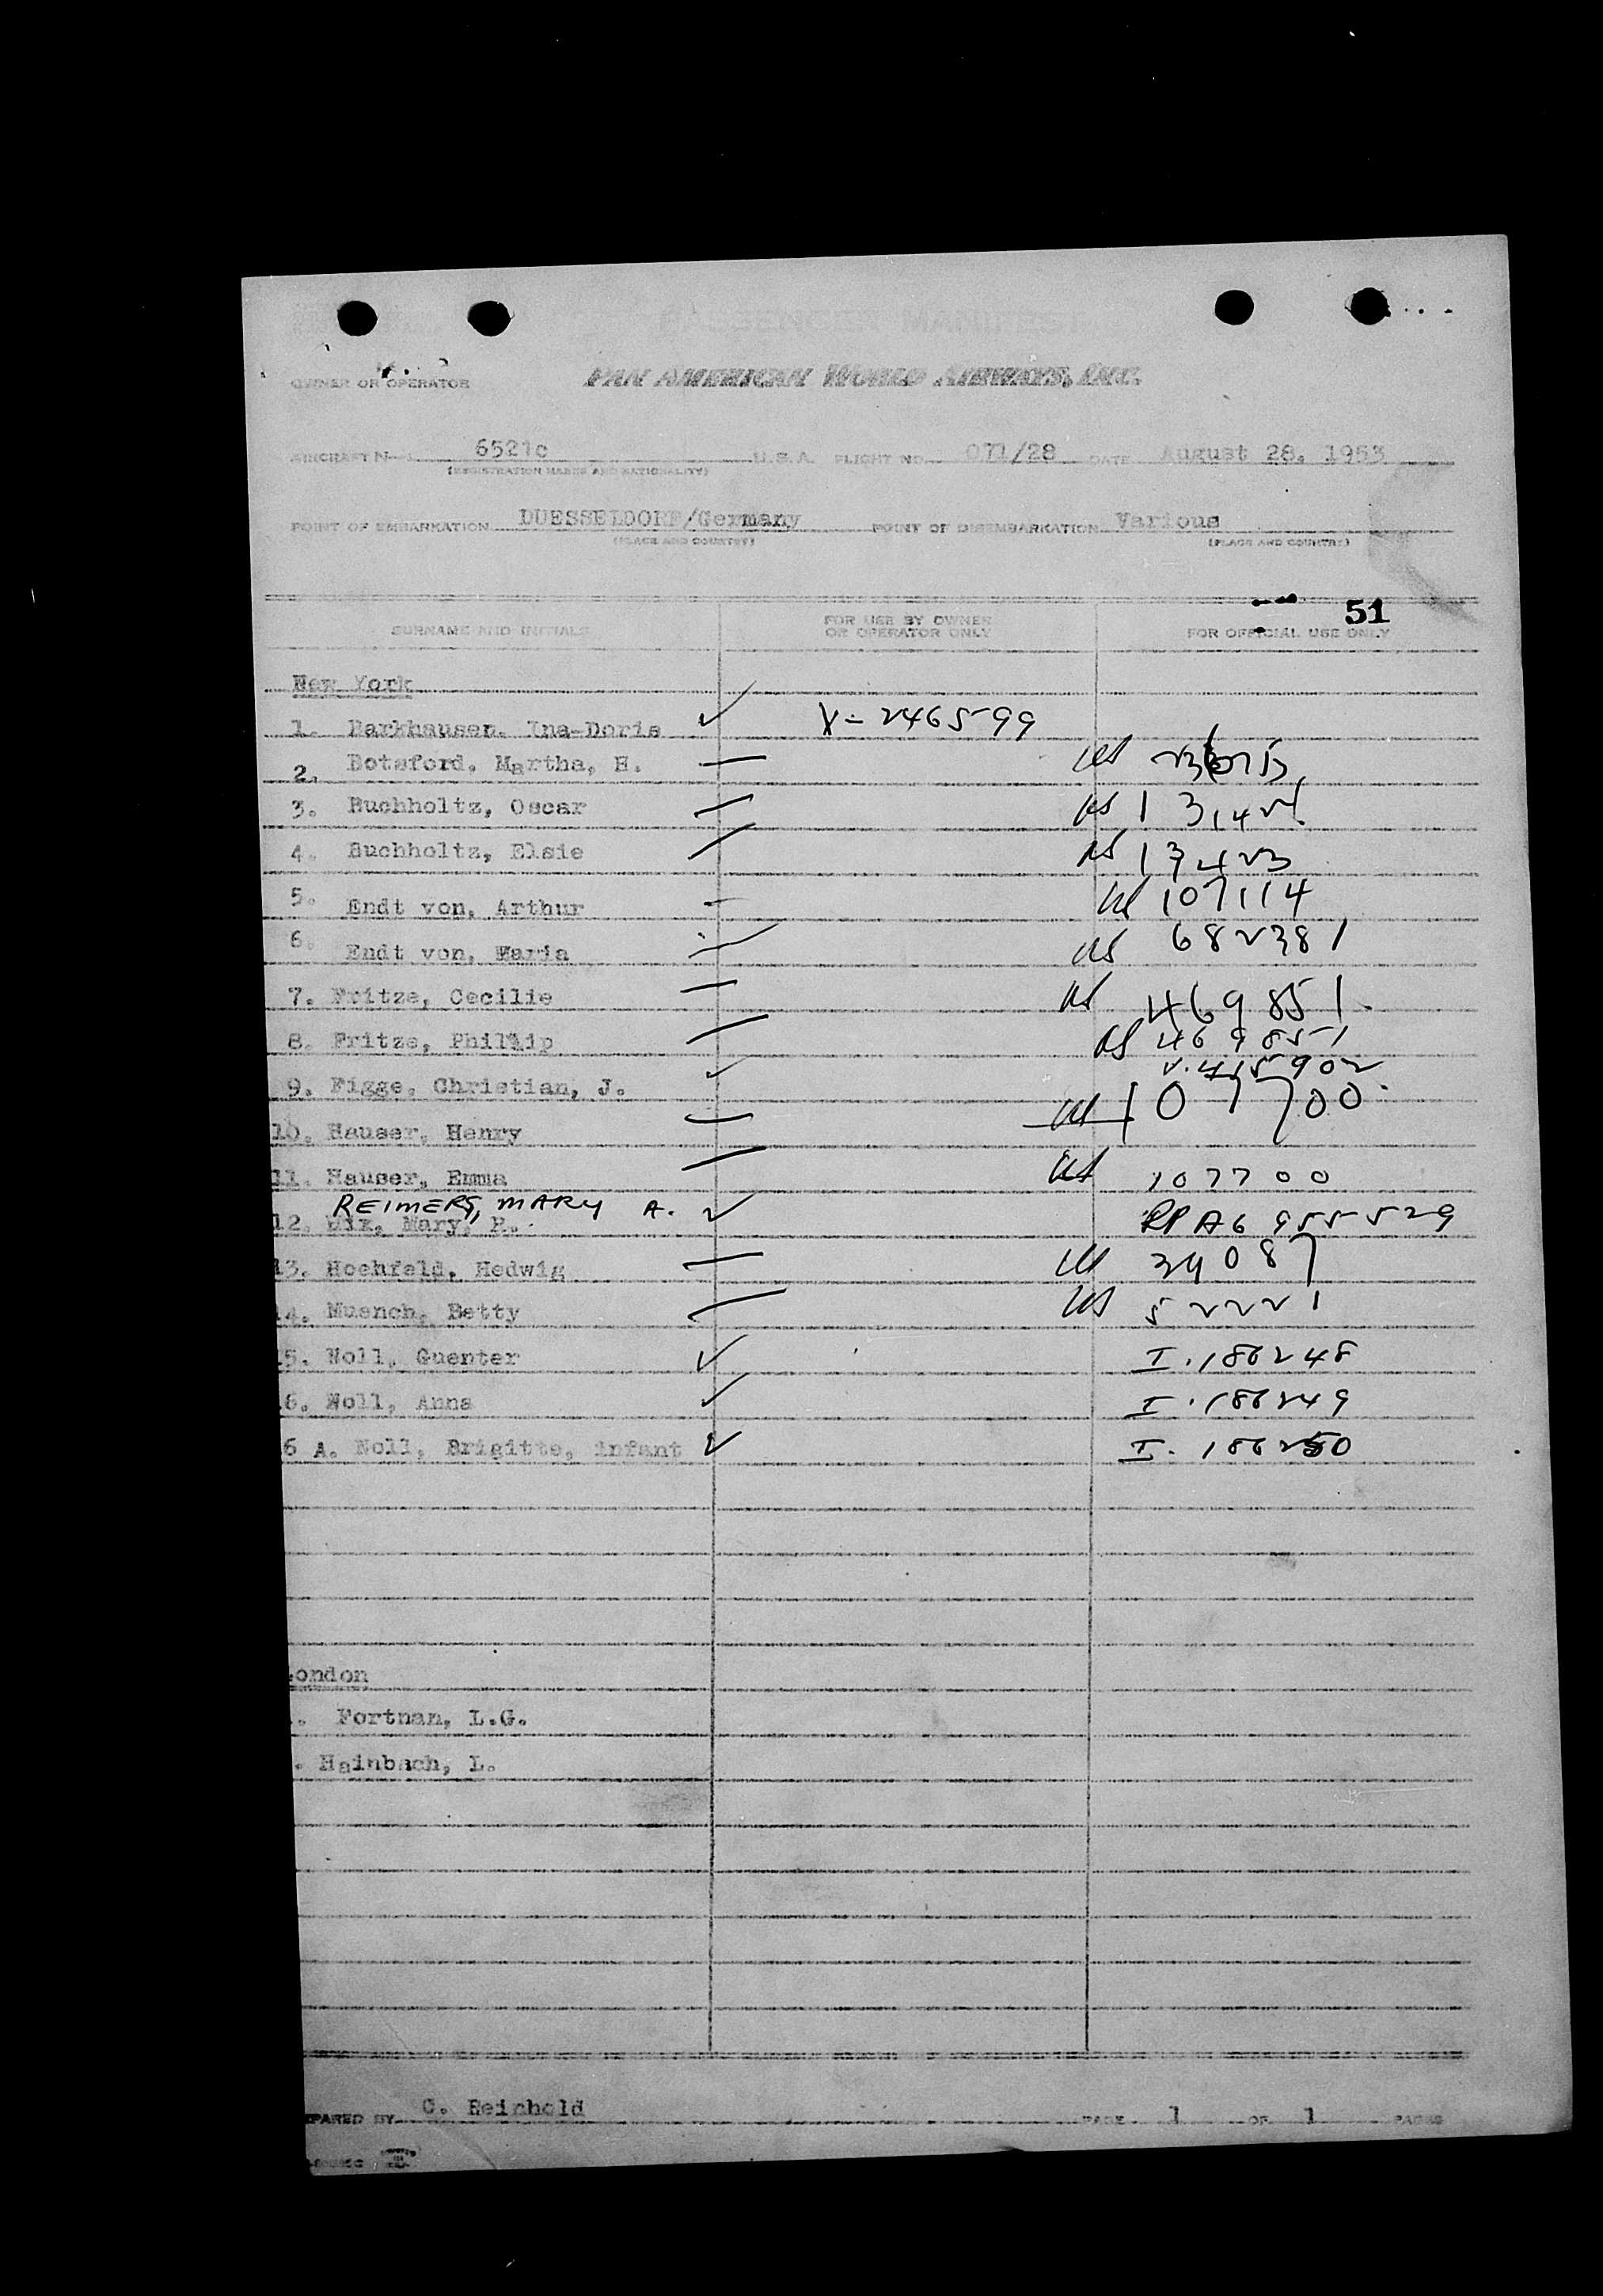 PASSENGER MANIFEST
OWNER OR OPERATOR PAN AMERICAN WORLD AIRWAYS, INC.
AIRCRAFT N 6521c U.S.A. FLIGHT NO. 071/28 DATE August 28. 1953
(REGISTRATION MARKS AND NATIONALITY)
POINT OF EMBARKATION DUESSELDORF/Germany POINT OF DISEMBARKATION Various
(PLACE AND COUNTRY) (PLACE AND COUNTRY)
51
SURNAME AND INITIALS FOR USE BY OWNER OR OPERATOR ONLY FOR OFFICIAL USE ONLY
New York
1. Barkhausen. Ina-Doris ✓ V-246599
2. Botsford. Martha, H. — US
3. Buchholtz, Oscar — US
4. Buchholtz, Elsie — US 13423
5. Endt von, Arthur - US 107114
6. Endt von, Maria — US 682381
7. Fritze, Cecilie — US 469851
8. Fritze, Phillip — US 469851
9. Figge, Christian, J. ✓ V.415902
10. Hauser, Henry — US 107700
11. Hauser, Emma — US 107700
REIMERS, MARY A. ✓ RP A6 955529
12. Mary,
13. Hochfeld. Hedwig — US 24087
14. Muench, Betty — US 52221
15. Noll, Guenter ✓ I.186248
6. Noll, Anna ✓ I.186249
6 A. Noll, Brigitte, infant ✓ I.186250
London
. Fortnan, L.G.
. Hainbach, L.
PREPARED BY C. Reinhold PAGE 1 OF 1 PAGES